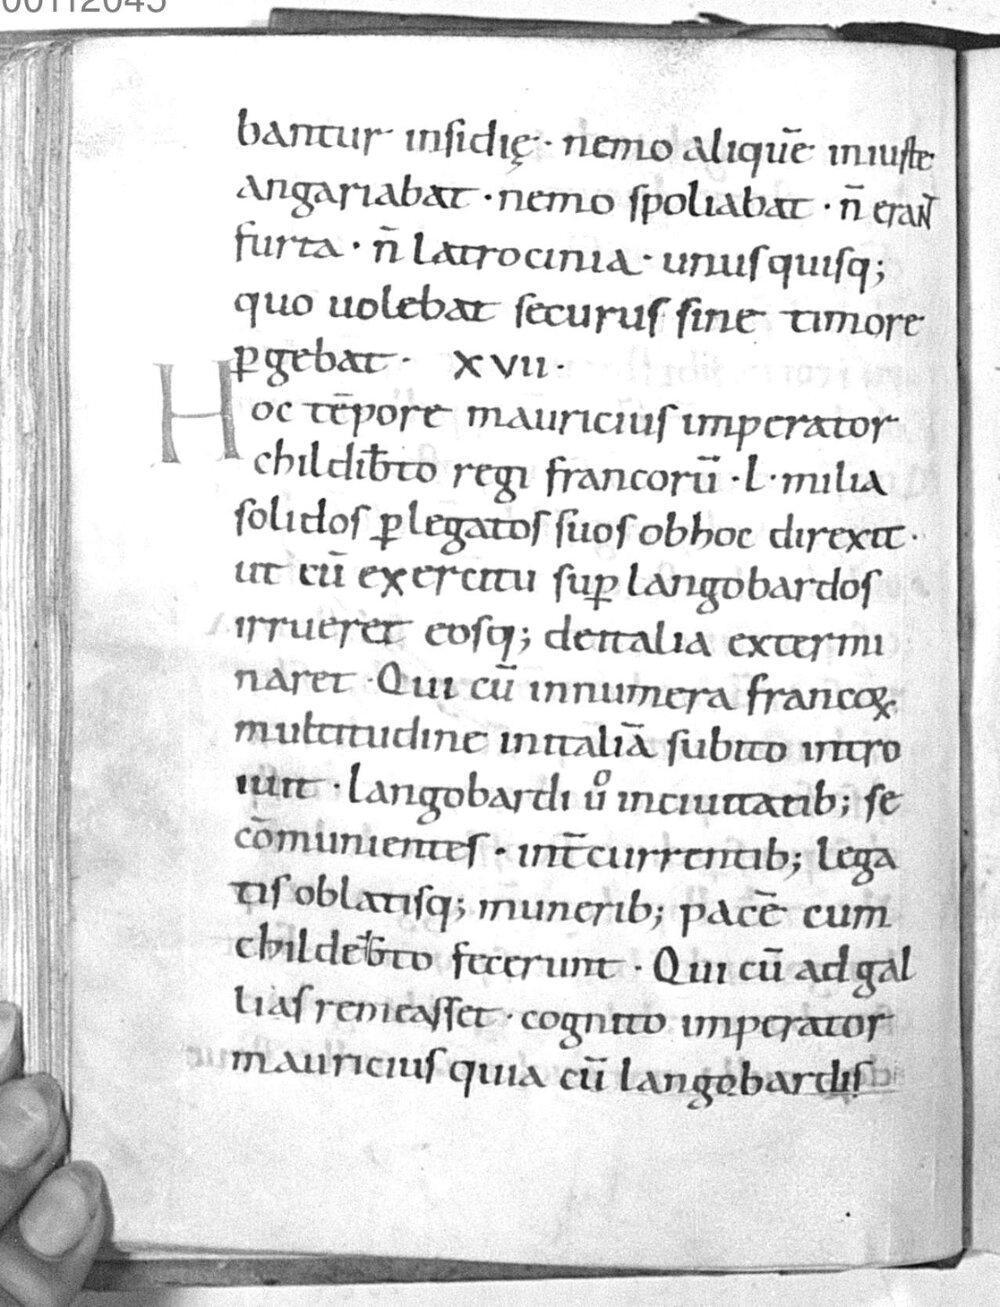 00112045
bantur insidię · nemo aliquē iniuste
angariabat · nemo spoliabat · n̄ erant
furta · n̄ latrocinia · unusquisq;
quo uolebat securus sine timore
ꝑgebat · XVII ·
Hoc tēpore mauricius imperator
childib̄to regi francorū · L · milia
solidos ꝑ legatos suos obhoc direxit ·
ut cū exercitu suꝑ langobardos
irrueret eosq; deitalia extermi
naret · Qui cū innumera francoꝝ
multitudine initaliā subito intro
iuit · langobardi uͦ inciuitatib; se
cōmunientes · int̄currentib; lega
tis oblatisq; munerib; pacē cum
childeb̄to fecerunt · Qui cū ad gal
lias remeasset · cognito imperator
mauricius quia cū langobardis